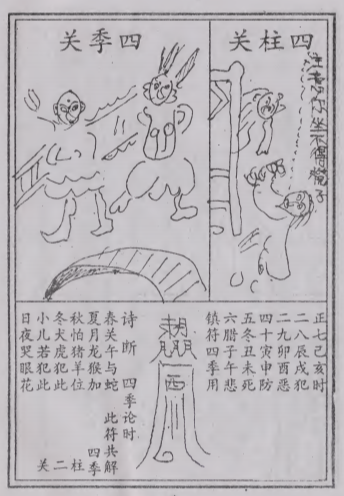 四柱关
注意坐不得凳子
正七己亥时
二八辰戌犯
二九卯酉恶
四十寅申防
五冬丑未死
六腊子午悲
镇符四季用
四季关
西
诗断 四季论时
春关午与蛇
夏月龙猴加
秋怕猪羊位
冬犬虎犯此
小儿若犯此
日夜哭眼花
此符共解
四季
柱二关